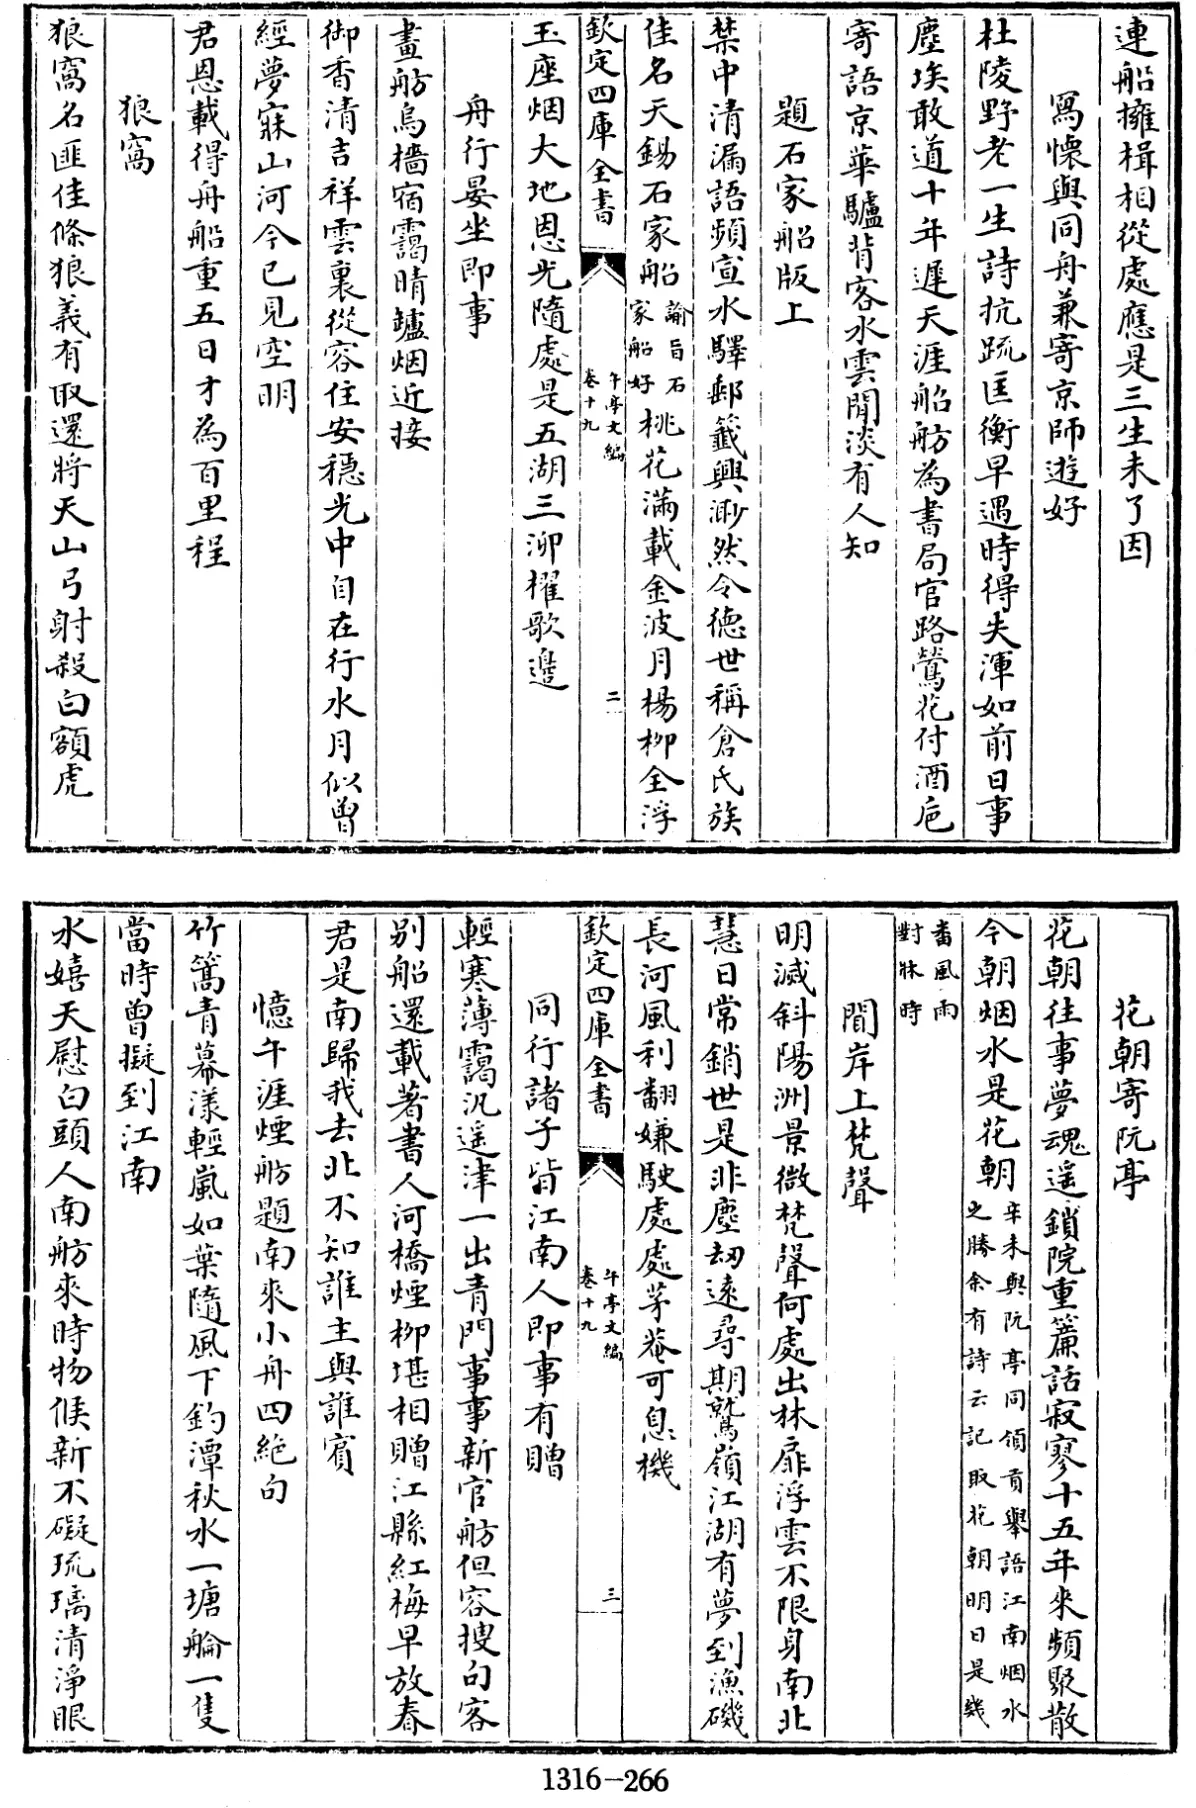 連船擁楫相從處應是三生未了因
寫懷與同舟兼寄京師遊好
杜陵野老一生詩抗疏匡衡早遇時得失渾如前日事
塵埃敢道十年遲天涯船舫為書局官路鶯花付酒巵
寄語京華驢背客水雲閒淡有人知
題石家船版上
禁中清漏語頻宣水驛郵籤興渺然令德世稱倉氏族
佳名天錫石家船諭旨石家船好桃花滿載金波月楊柳全浮
欽定四庫全書
午亭文編
卷十九
二
玉座烟大地恩光隨處是五湖三泖櫂歌邊
舟行晏坐即事
畫舫烏檣宿靄晴罏烟近接
御香清吉祥雲裏從容住安穩光中自在行水月似曾
經夢寐山河今已見空明
君恩載得舟船重五日才為百里程
狼窩
狼窩名匪佳條狼義有取還將天山弓射殺白額虎
花朝寄阮亭
花朝往事夢魂遥鎖院重簾話寂寥十五年來頻聚散
今朝烟水是花朝辛未與阮亭同領貢舉語江南烟水之勝余有詩云記取花朝明日是幾
番風雨對牀時
聞岸上梵聲
明滅斜陽洲景微梵聲何處出林扉浮雲不限身南北
慧日常銷世是非塵劫遠尋期鷲嶺江湖有夢到漁磯
長河風利翻嫌駛處處茅菴可息機
欽定四庫全書
午亭文編
卷十九
三
同行諸子皆江南人即事有贈
輕寒薄靄汎遥津一出青門事事新官舫但容搜句客
别船還載著書人河橋煙柳堪相贈江縣紅梅早放春
君是南歸我去北不知誰主與誰賓
憶午涯煙舫題南來小舟四絶句
竹篙青幕漾輕嵐如葉隨風下釣潭秋水一塘艑一隻
當時曾擬到江南
水嬉天慰白頭人南舫來時物候新不礙琉璃清淨眼
1316-266